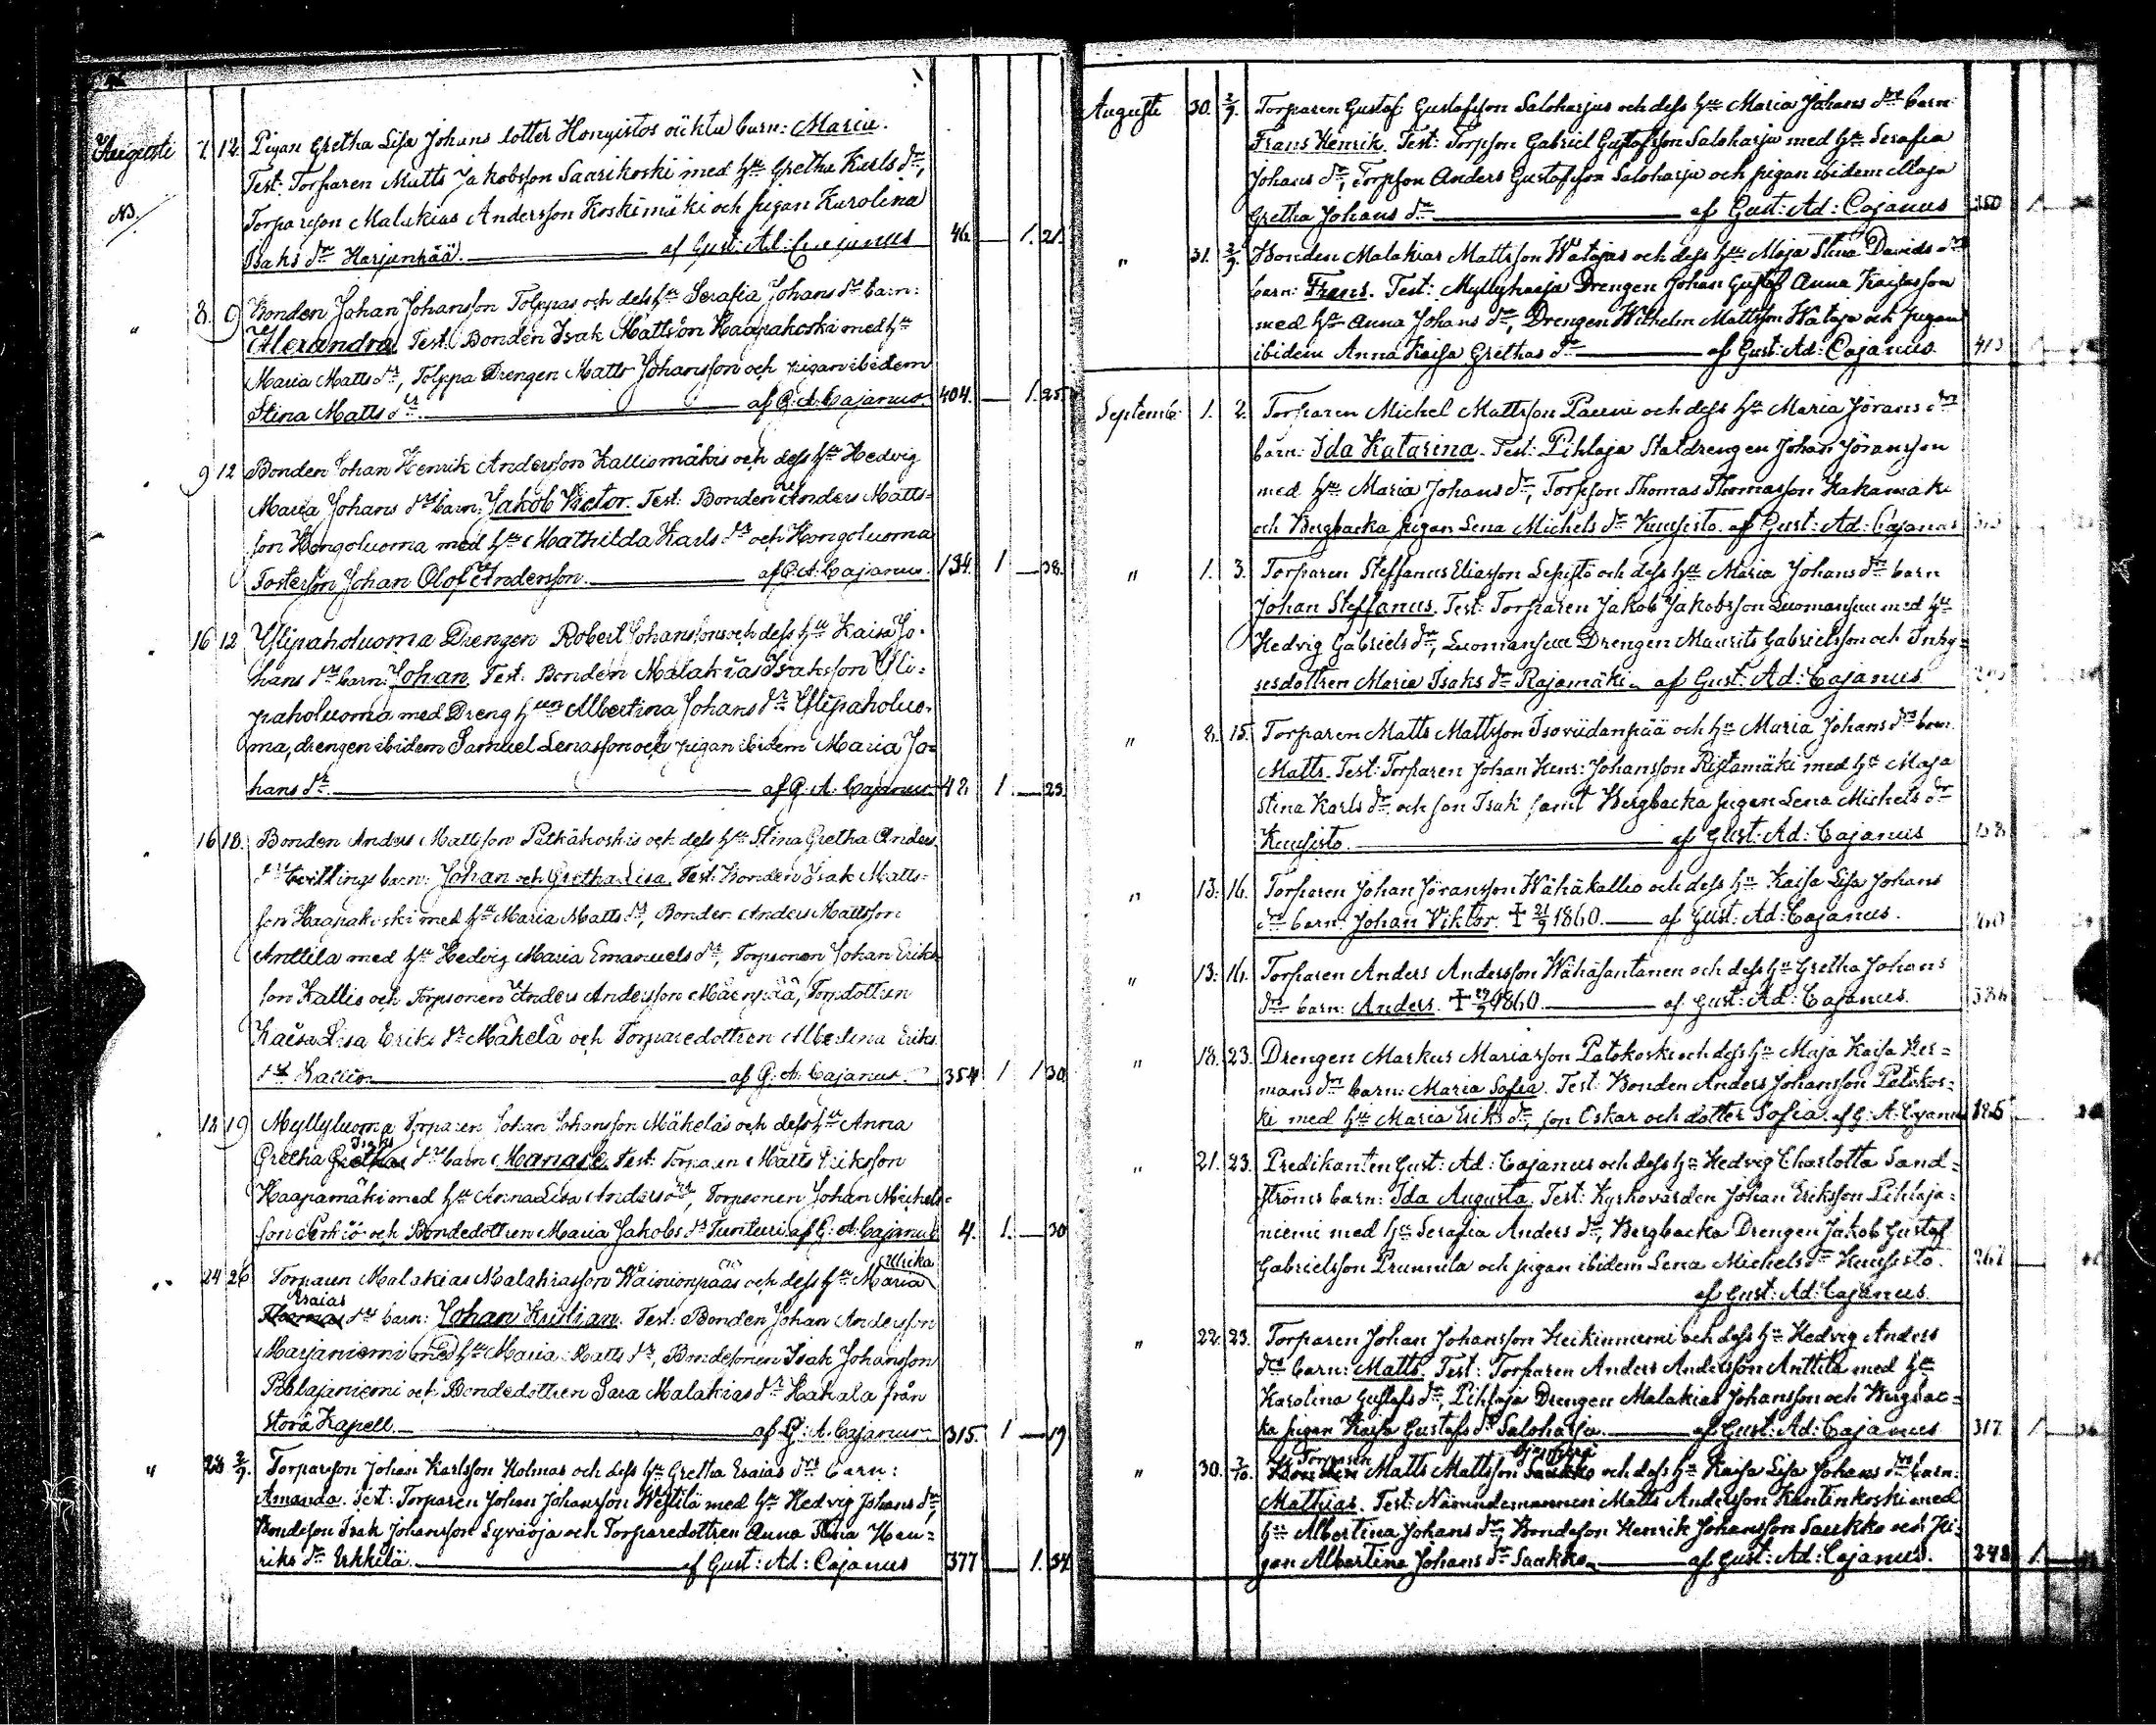 Augusti 7. 12. Pigan Gretha Lisa Johans dotter Hongistos oäkta barn: Maria.
NB. Test: Torparen Matts Jakobsson Saarikoski med hu Gretha Karls dr,
Torparson Malakias Andersson Koskimäki och pigan Karolina
Isaks dr Harjunpää. af Gust: Ad: Cajanus 46 1. 21.
" 8. 9 Bonden Johan Johansson Tolppas och dess hu Serafia Johans dr barn:
Alexandra. Test. Bonden Isak Mattsson Haapakoski med hu
Maria Matts dr, Tolppa Drengen Matts Johansson och pigan ibidem
Stina Matts dr af G. A. Cajanus. 404. 1. 25.
" 9 12 Bonden Johan Henrik Andersson Kalliomäkis och dess hu Hedvig
Maria Johans drs barn: Jakob Victor. Test. Bonden Anders Matts-
son Hongoluoma med hu Mathilda Karls dr och Hongoluoma
Fosterson Johan Olof Andersson. af G. A. Cajanus. 134. 1 38.
" 16 12 Ylipaholuoma Drengen Robert Johanssons och dess hu Kaisa Jo-
hans drs barn: Johan. Test. Bonden Malakias Isaksson Yli-
paholuoma med Dreng hun Albertina Johans dr Ylipaholuo-
ma, drengen ibidem Samuel Lenasson och pigan ibidem Maria Jo-
hans dr. af G. A. Cajanus. 42. 1. 23.
" 16 18. Bonden Anders Mattsson Patkäkoskis och dess hu Stina Gretha Anders
drs tvillings barn: Johan och Gretha Lisa. Test. Bonden Isak Matts-
son Haapakoski med hu Maria Matts dr, Bonden Anders Mattsson
Anttila med hu Hedvig Maria Emanuels dr, Torpsonen Johan Eriks-
son Kallio och Torpsonen Anders Andersson Mäenpää, Torpdottren
Kaisa Lisa Eriks dr Mäkelä och Torparedottren Albertina Eriks
dr Kallio af G. A. Cajanus. 354 1 1 30
18 19 Myllyluoma Torparen Johan Johansson Mäkeläs och dess hu Anna
Isaks
Gretha Grethas drs barn Manase. Test. Torparen Matts Eriksson
Haapamäki med hu Anna Lisa Anders dr, Torpsonen Johan Michels-
son Penkiö och Bondedottren Maria Jakobs dr Tunturi. af G. A. Cajanus 4. 1. 30
Ulrika
" 24 26 Torparen Malakias Malakiasson Wäinionpääs och dess hu Maria
Esaias
Thomas drs barn: Johan Kristian. Test. Bonden Johan Andersson
Marjaniemi med hu Maria Matts dr, Bondesonen Isak Johansson
Pihlajaniemi och Bondedottren Sara Malakias dr Hakala från
Storå Kapell. af G. A. Cajanus 315. 1 19
" 28 2/9. Torparson Johan Karlsson Holmas och dess hu Gretha Esaias drs barn:
Amanda. Test: Torparen Johan Johansson Westilä med hu Hedvig Johans dr,
Bondeson Isak Johansson Syväoja och Torparedottren Anna Stina Hen-
riks dr Erkkilä. af Gust: Ad: Cajanus 377 1. 34
Augusti 30. 2/9. Torparen Gustaf Gustafsson Saloharjus och dess hu Maria Johans drs barn:
Frans Henrik. Test: Torpson Gabriel Gustafsson Saloharju med hu Serafia
Johans dr, Torpson Anders Gustafsson Saloharju och pigan ibidem Maja
Gretha Johans dr af Gust: Ad: Cajanus 250 1
" 31. 2/9. Bonden Malakias Mattsson Watajas och dess hu Maja Stina Davids drs
barn: Frans. Test: Myllyharja Drengen Johan Gustaf Anna Kaisasson
med hu Anna Johans dr, Drengen Wilhelm Mattsson Wataja och pigan
ibidem Anna Kaisa Grethas dr af Gust: Ad: Cajanus. 413
Septemb. 1. 2. Torparen Michel Mattsson Panni och dess hu Maria Jörans drs
barn: Ida Katarina. Test: Pihlaja Staldrengen Johan Jöransson
med hu Maria Johans dr, Torpson Thomas Thomasson Kakamäki
och Bergbacka pigan Lena Michels dr Kuusisto. af Gust: Ad: Cajanus
" 1. 3. Torparen Steffanus Eliasson Lepistö och dess hu Maria Johans drs barn
Johan Steffanus. Test: Torparen Jakob Jakobsson Luomansuu med hu
Hedvig Gabriels dr, Luomansuu Drengen Maurits Gabrielsson och Inhy-
sesdottren Maria Isaks dr Rajamäki. af Gust: Ad: Cajanus
" 8. 15. Torparen Matts Mattsson Isoviidanpää och hu Maria Johans drs barn:
Matts. Test: Torparen Johan Henr: Johansson Ristamäki med hu Maja
Stina Karls dr och son Isak samt Bergbacka pigan Lena Michels dr
Kuusisto. af Gust: Ad: Cajanus
" 13. 16. Torparen Johan Jöransson Wähäkallio och dess hu Kaisa Lisa Johans
drs barn: Johan Viktor. † 21/9 1860. af Gust: Ad: Cajanus.
" 13. 16. Torparen Anders Andersson Wähäsantanen och dess hu Gretha Johans
drs barn: Anders. † 29/9 1860. af Gust: Ad: Cajanus.
" 18. 23. Drengen Markus Mariasson Patokoski och dess hu Maja Kaisa Her-
mans drs barn: Maria Sofia. Test: Bonden Anders Johansson Patokos-
ki med hu Maria Eriks dr, son Oskar och dotter Sofia. af G. A. Cajanus 185
" 21. 23. Predikanten Gust: Ad: Cajanus och dess hu Hedvig Charlotta Sand-
ströms barn: Ida Augusta. Test: Kyrkovärden Johan Eriksson Pihlaja-
niemi med hu Serafia Anders dr, Bergbacka Drengen Jakob Gustaf
Gabrielsson Prunnila och pigan ibidem Lena Michels dr Kuusisto. 267
af Gust: Ad: Cajanus.
" 22. 23. Torparen Johan Johansson Heikinniemi och dess hu Hedvig Anders
drs barn: Matts. Test: Torparen Anders Andersson Anttila med hu
Karolina Gustafs dr, Pihlaja Drengen Malakias Johansson och Bergbac-
ka pigan Kaisa Gustafs dr Saloharju. af Gust: Ad: Cajanus 317 1
Torparen
" 30. 2/10. Bonden Matts Mattsson Saukko och dess hu Kaisa Lisa Johans drs barn:
Mathias. Test: Nämndemannen Matts Andersson Kantinkoski med
hu Albertina Johans dr, Bondeson Henrik Johansson Saukko och Pi-
gan Albertina Johans dr Saukko. af Gust: Ad: Cajanus. 248 1